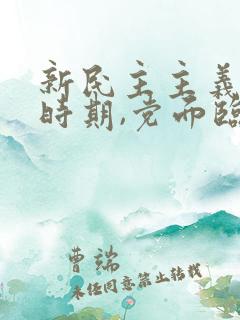 新民主主義
時期,党面臨
曹端
未经同意禁止转载